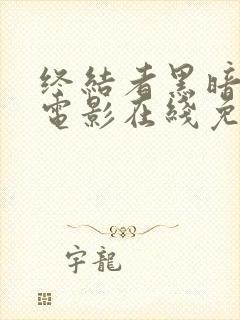 终结者黑暗
電影在綫免
宇龍